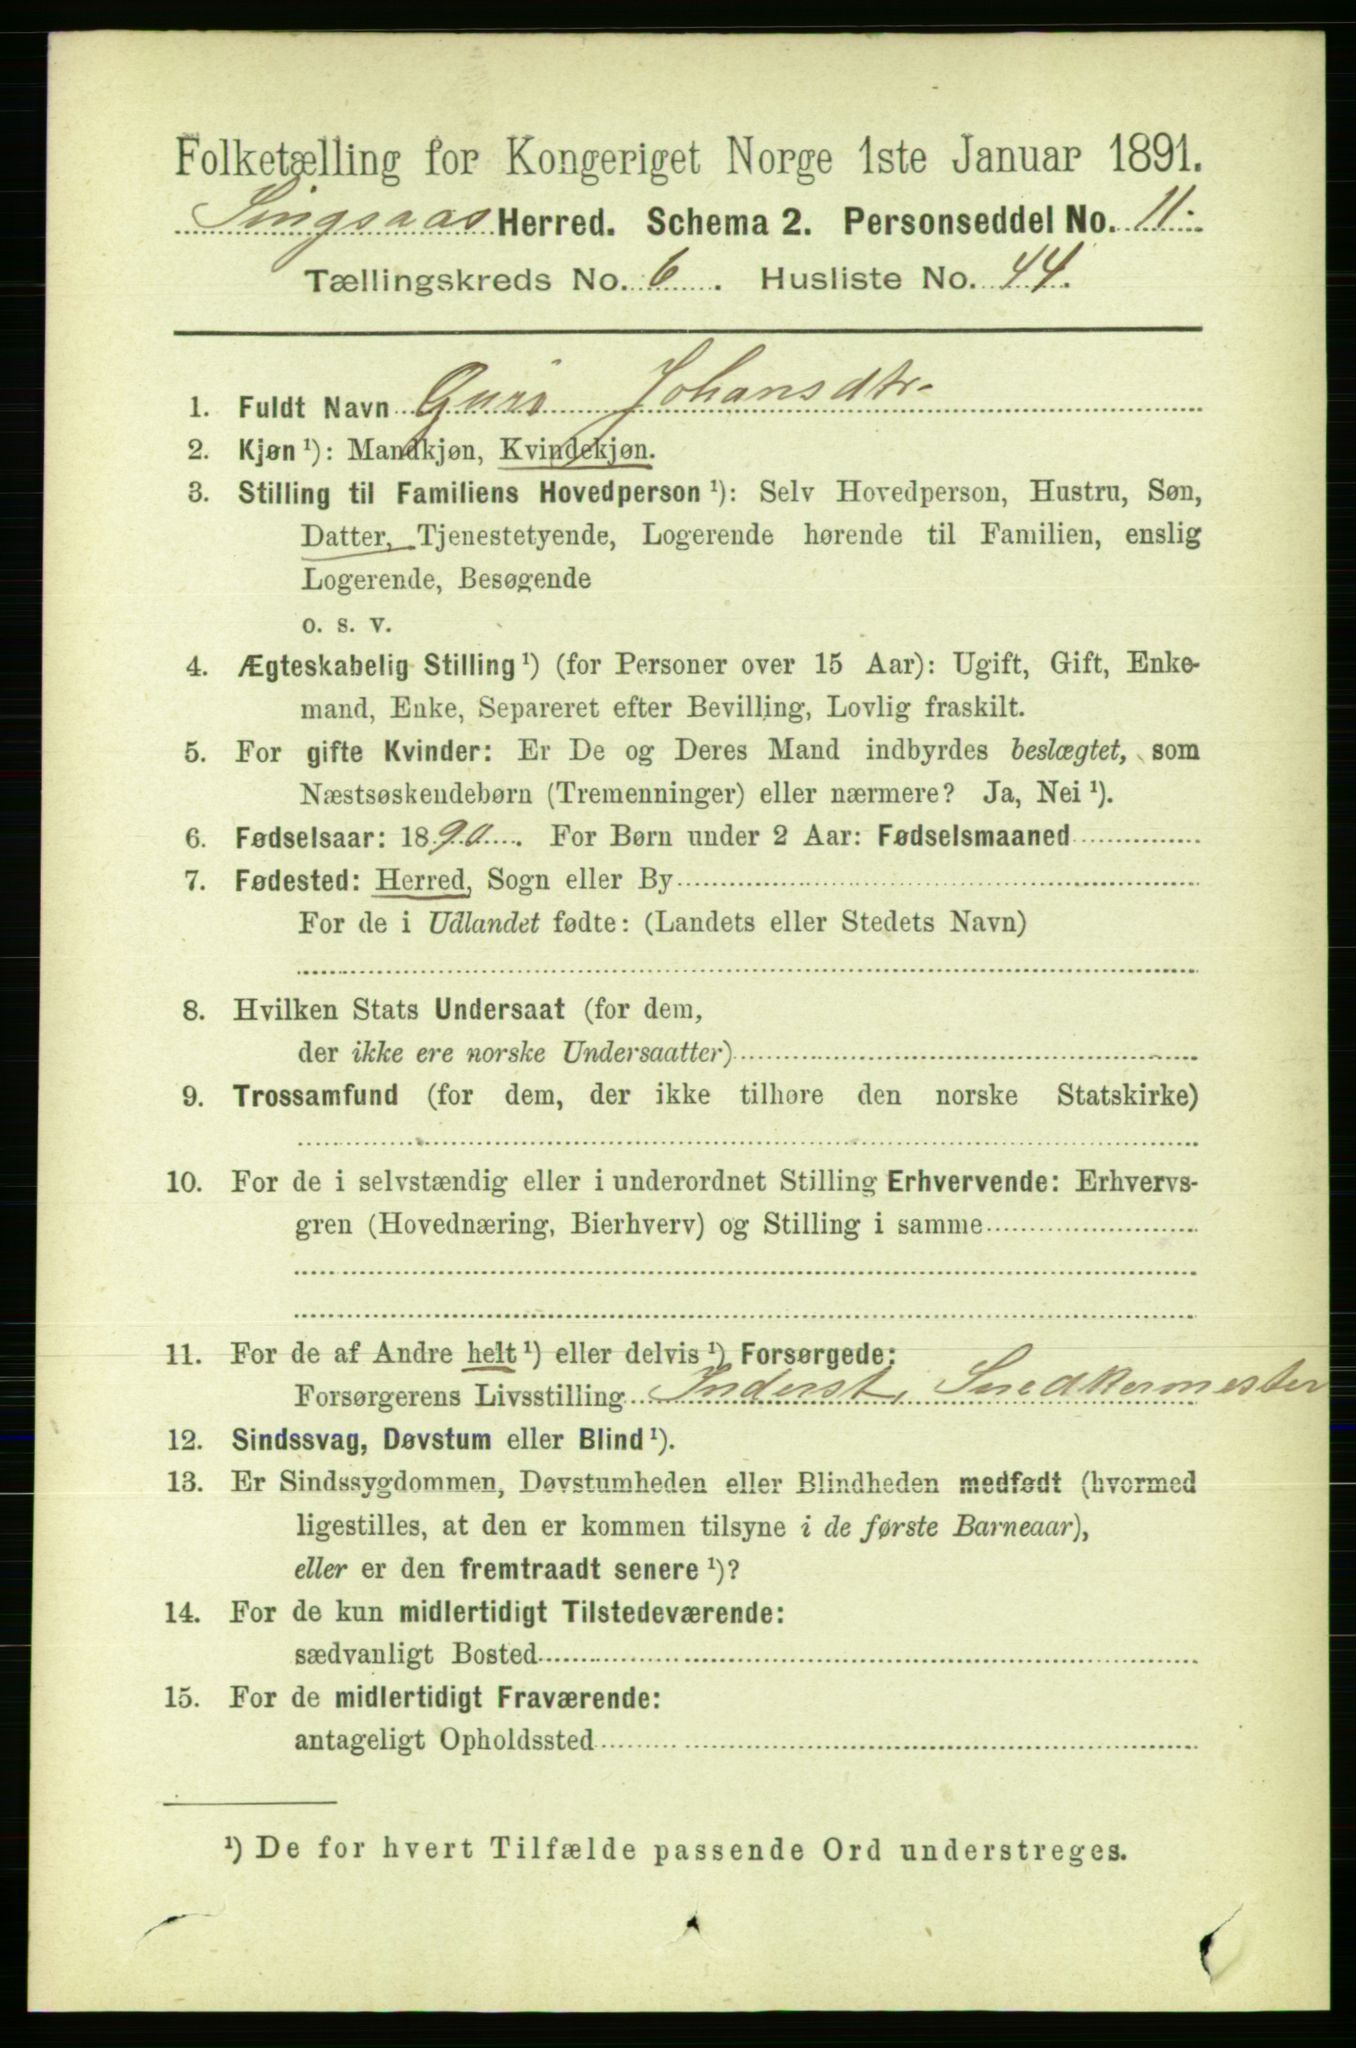 Folketælling for Kongeriget Norge 1ste Januar 1891.
Singsaas Herred. Schema 2. Personseddel No. 11.
Tællingskreds No. 6. Husliste No. 44.
1. Fuldt Navn Guri Johansdtr.
2. Kjøn ¹): Mandkjøn, Kvindekjøn.
3. Stilling til Familiens Hovedperson ¹): Selv Hovedperson, Hustru, Søn,
Datter, Tjenestetyende, Logerende hørende til Familien, enslig
Logerende, Besøgende
o. s. v.
4. Ægteskabelig Stilling ¹) (for Personer over 15 Aar): Ugift, Gift, Enke-
mand, Enke, Separeret efter Bevilling, Lovlig fraskilt.
5. For gifte Kvinder: Er De og Deres Mand indbyrdes beslægtet, som
Næstsøskendebørn (Tremenninger) eller nærmere? Ja, Nei ¹).
6. Fødselsaar: 1890. For Børn under 2 Aar: Fødselsmaaned
7. Fødested: Herred, Sogn eller By
For de i Udlandet fødte: (Landets eller Stedets Navn)
8. Hvilken Stats Undersaat (for dem,
der ikke ere norske Undersaatter)
9. Trossamfund (for dem, der ikke tilhøre den norske Statskirke)
10. For de i selvstændig eller i underordnet Stilling Erhvervende: Erhvervs-
gren (Hovednæring, Bierhverv) og Stilling i samme
11. For de af Andre helt ¹) eller delvis ¹) Forsørgede:
Forsørgerens Livsstilling Inderst, Snedkermester
12. Sindssvag, Døvstum eller Blind ¹).
13. Er Sindssygdommen, Døvstumheden eller Blindheden medfødt (hvormed
ligestilles, at den er kommen tilsyne i de første Barneaar),
eller er den fremtraadt senere ¹)?
14. For de kun midlertidigt Tilstedeværende:
sædvanligt Bosted
15. For de midlertidigt Fraværende:
antageligt Opholdssted
¹) De for hvert Tilfælde passende Ord understreges.